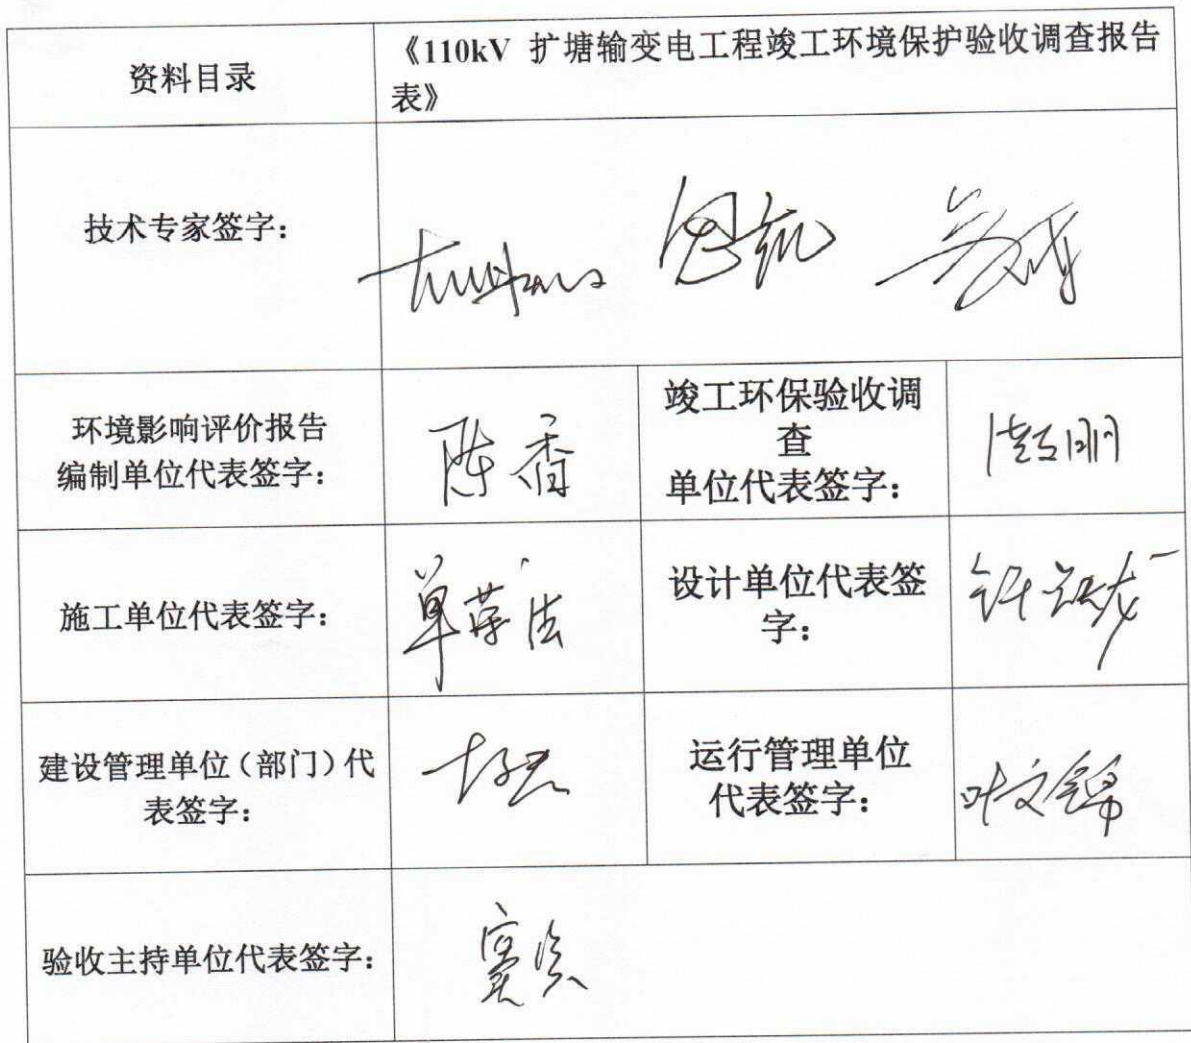 资料目录
《110kV 扩塘输变电工程竣工环境保护验收调查报告
表》
技术专家签字：
环境影响评价报告
编制单位代表签字：
陈香
竣工环保验收调
查
单位代表签字：
施工单位代表签字：
单荣法
设计单位代表签
字：
建设管理单位（部门）代
表签字：
运行管理单位
代表签字：
叶文锦
验收主持单位代表签字：